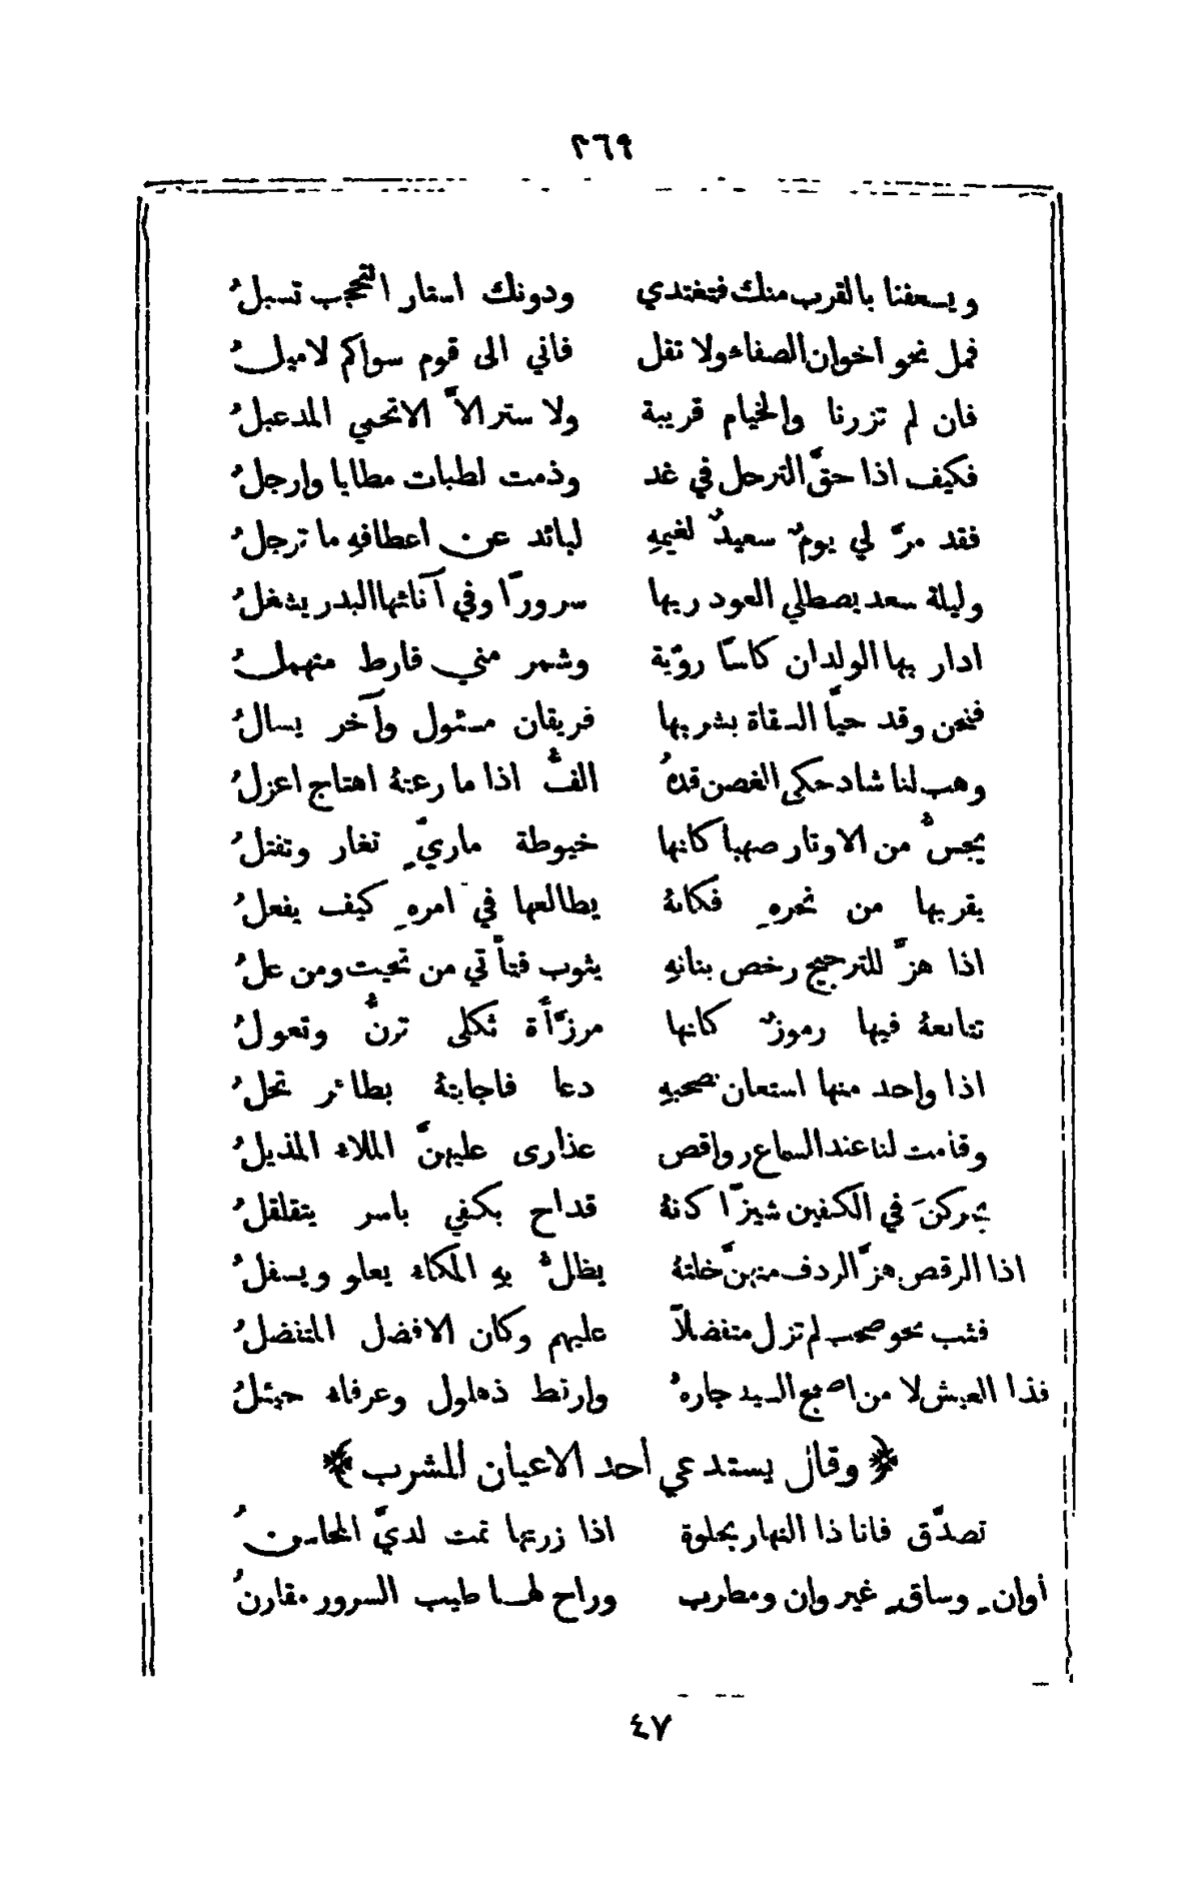 ٣٦٩
ويسعفنا بالقرب منك فتغتدي ودونك استار التحجب تسبلُ
فمل نحو اخوان الصفاء ولا تقل فاني الى قوم سواكم لاميلُ
فان لم تزرنا والخيام قريبة ولا ستر الاَّ الاتحمي المدعبلُ
فكيف اذا حقَّ الترحل في غد وذمت لطيات مطايا وارجلُ
فقد مرَّ لي يومٌ سعيدٌ لغيمهِ لبائد عن اعطافهِ ما ترجلُ
وليلة سعد يصطلي العود ربها سرورًا وفي آنائها البدر يشغلُ
ادار بها الولدان كاسًا رويّة وشمر مني فارط متمهلُ
فنحن وقد حيَّا السقاة بشربها فريقان مسئول وآخر يسالُ
وهب لنا شاد حكى الغصن قدهُ الفُّ اذا ما رعتهُ اهتاج اعزلُ
يجسُّ من الاوتار صهبا كانها خيوطة ماريٍّ تغار وتفتلُ
يقربها من نحرهِ فكانهُ يطالعها في امرهِ كيف يفعلُ
اذا هزَّ للترجيح رخص بنانهِ يثوب فتأتي من تحيت ومن علُ
تتابعهُ فيها رموزٌ كانها مرزَّأة ثكلى ترنُّ وتعولُ
اذا واحد منها استعان بصحبهِ دعا فاجابتهُ بطائر تحلُ
وقامت لنا عند السماع رواقص عذارى عليهنَّ الملاء المذيلُ
يحركنَ في الكفين شيزًا كنهُ قداح بكفي ياسر يتقلقلُ
اذا الرقص هزَّ الردف منهنَّ خلتهُ يظلُّ بهِ المكاء يعلو ويسفلُ
فثب نحو صحب لم تزل متفضلاً عليهم وكان الافضل المتفضلُ
فذا العيش لا من اصبح السيد جارهُ وارقط ذهلول وعرفاء جيئلُ
﴿ وقال يستدعي احد الاعيان للشرب ﴾
تصدَّق فانا ذا النهار بخلوة اذا زرتها تمت لديَّ المحاسنُ
أوانٍ وساقٍ غير وان ومطرب وراح لها طيب السرور مقارنُ
٤٧